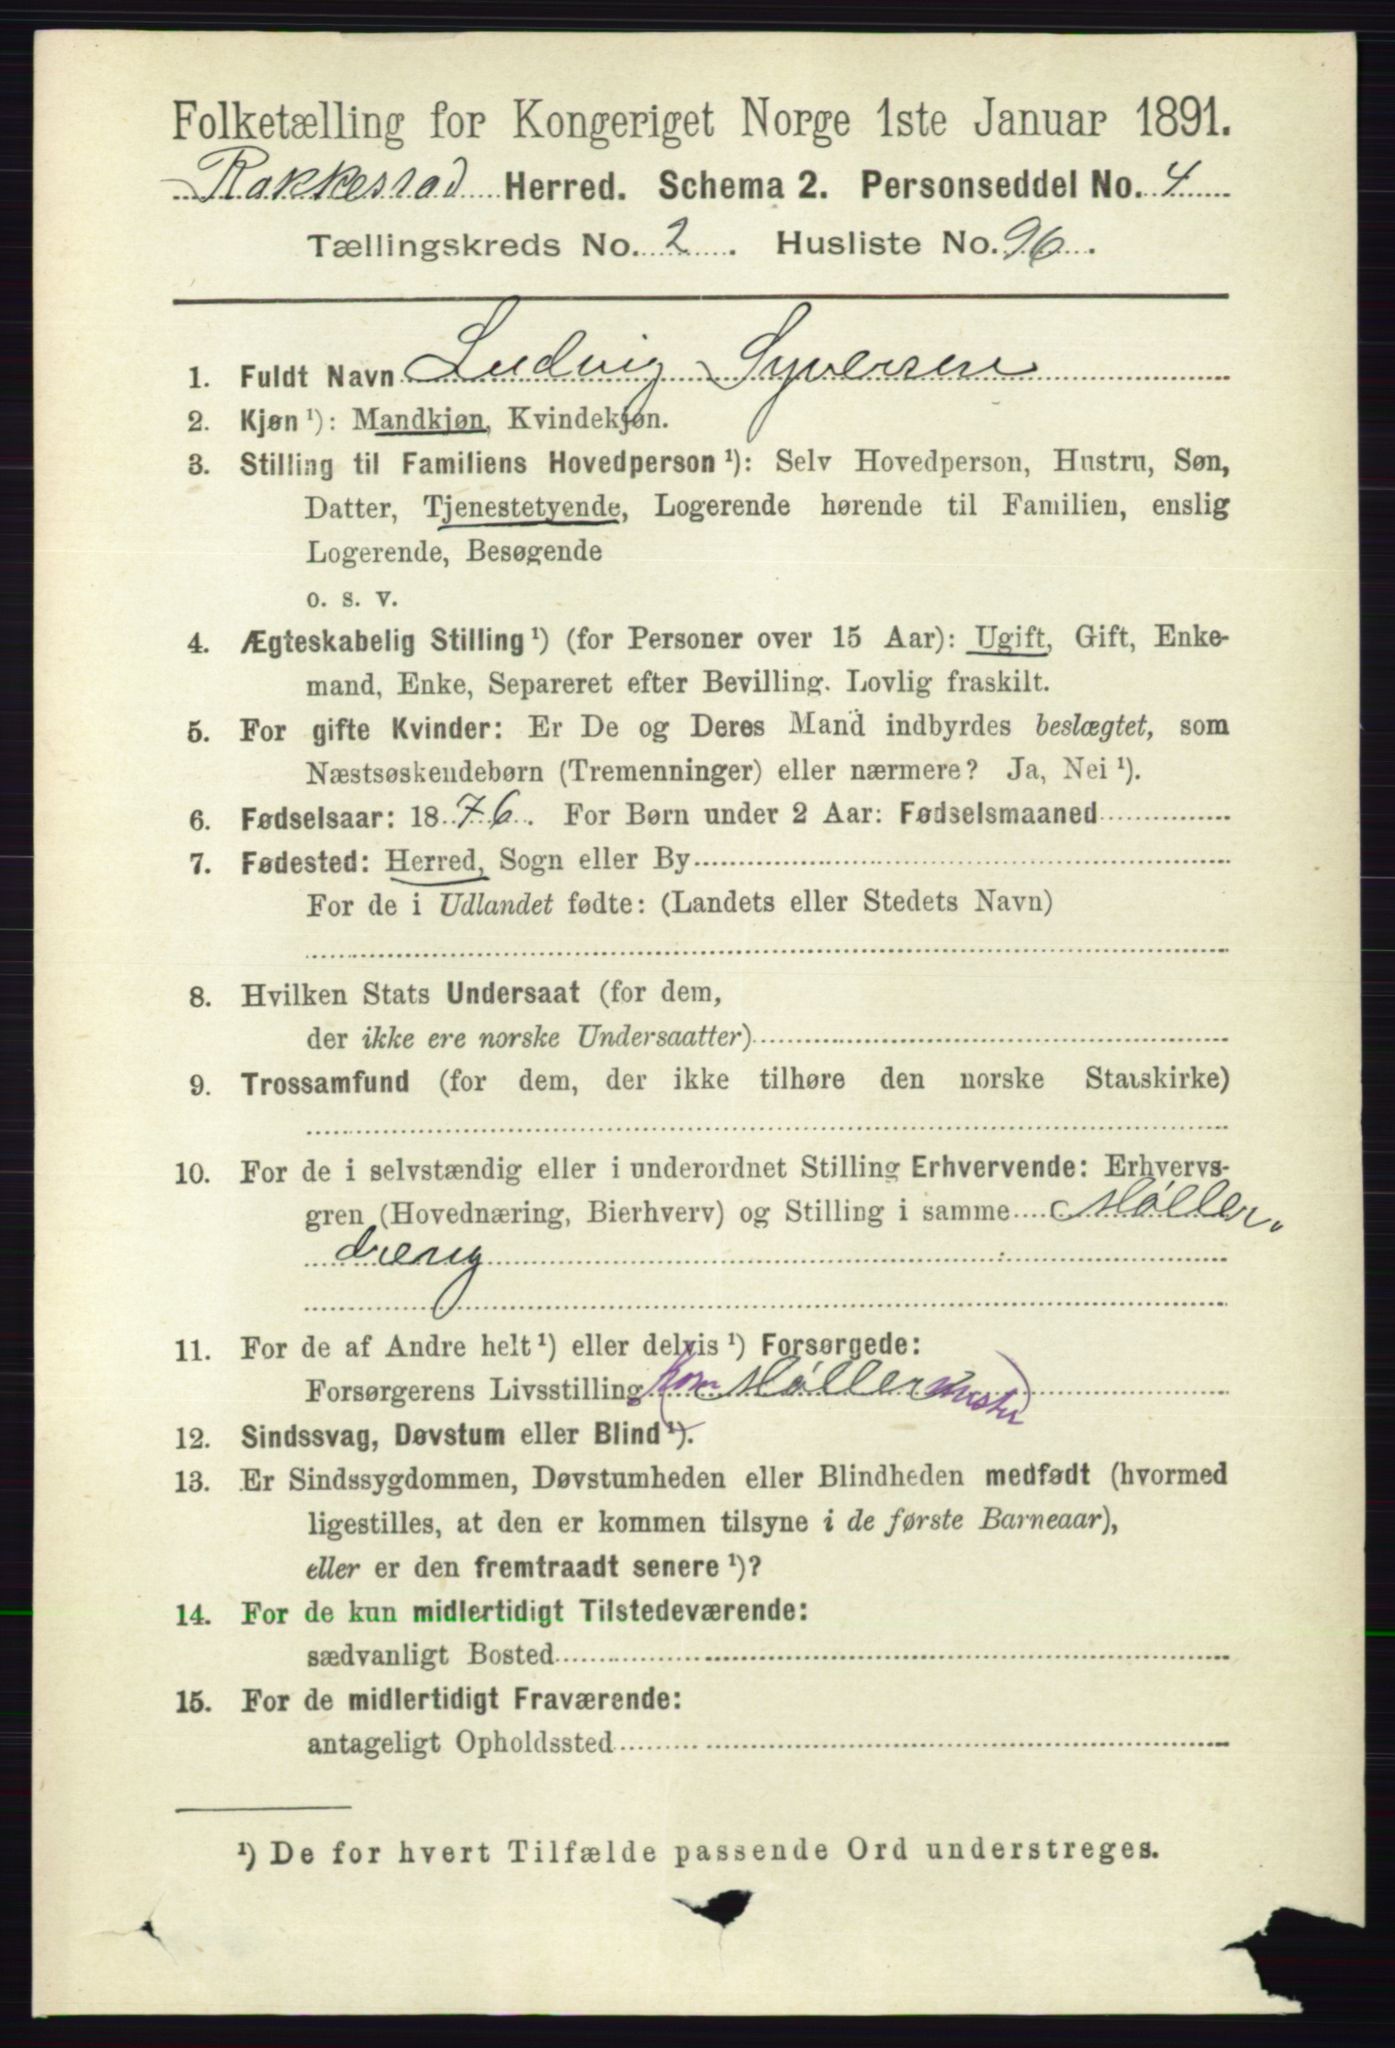 Folketælling for Kongeriget Norge 1ste Januar 1891.
Rakkestad Herred. Schema 2. Personseddel No. 4
Tællingskreds No. 2. Husliste No. 96.
1. Fuldt Navn Ludvig Syversen
2. Kjøn ¹): Mandkjøn, Kvindekjøn.
3. Stilling til Familiens Hovedperson ¹): Selv Hovedperson, Hustru, Søn,
Datter, Tjenestetyende, Logerende hørende til Familien, enslig
Logerende, Besøgende
o. s. v.
4. Ægteskabelig Stilling ¹) (for Personer over 15 Aar): Ugift, Gift, Enke-
mand, Enke, Separeret efter Bevilling. Lovlig fraskilt.
5. For gifte Kvinder: Er De og Deres Mand indbyrdes beslægtet, som
Næstsøskendebørn (Tremenninger) eller nærmere? Ja, Nei ¹).
6. Fødselsaar: 1876. For Børn under 2 Aar: Fødselsmaaned
7. Fødested: Herred, Sogn eller By
For de i Udlandet fødte: (Landets eller Stedets Navn)
8. Hvilken Stats Undersaat (for dem,
der ikke ere norske Undersaatter)
9. Trossamfund (for dem, der ikke tilhøre den norske Statskirke)
10. For de i selvstændig eller i underordnet Stilling Erhvervende: Erhvervs-
gren (Hovednæring, Bierhverv) og Stilling i samme Møller-
dreng
11. For de af Andre helt ¹) eller delvis ¹) Forsørgede:
Forsørgerens Livsstilling Møller
12. Sindssvag, Døvstum eller Blind ¹).
13. Er Sindssygdommen, Døvstumheden eller Blindheden medfødt (hvormed
ligestilles, at den er kommen tilsyne i de første Barneaar),
eller er den fremtraadt senere ¹)?
14. For de kun midlertidigt Tilstedeværende:
sædvanligt Bosted
15. For de midlertidigt Fraværende:
antageligt Opholdssted
¹) De for hvert Tilfælde passende Ord understreges.